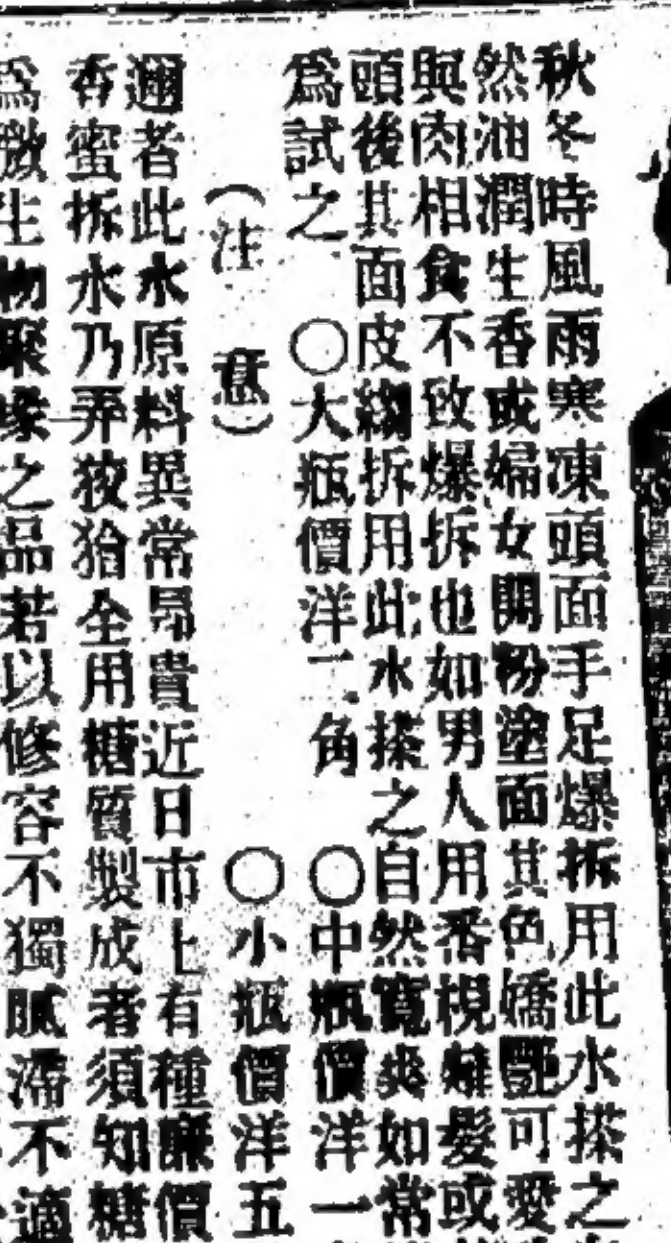 秋冬時風雨寒凍頭面手足爆拆用此水搽之
然油潤生香或婦女開粉塗面其色嬌艷可愛
與肉相食不致爆拆也如男人用番梘雉髮或
頭後其面皮縐拆用此水搽之自然寬爽如常
爲試之 ○大瓶價洋二角 ○中瓶價洋一
○小瓶價洋五
(注 意)
邇者此水原料異常昂貴近日市上有種廉價
香蜜拆水乃弄狡猾全用糖質製成者須知糖
爲微生物聚緣之品若以修容不獨膩滯不適